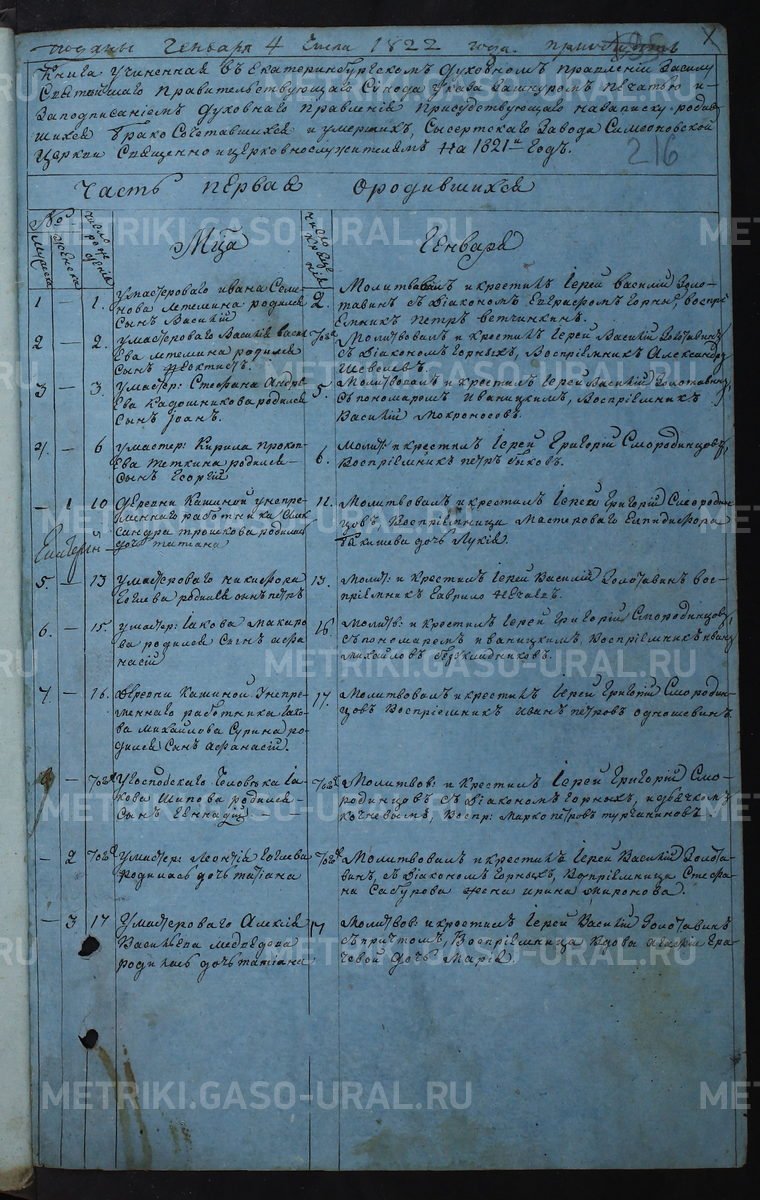 поданы Генваря 4 числа 1822 года.
216
Книга учиненная въ Екатеринбургскомъ духовномъ правленіи Василу
Святѣйшаго правительствующаго Сѵнода указа Зашнуромъ печатью и
Заподписаніемъ духовнаго правленія присудствующаго назаписку родив
шихся Брако Сочетавшихся и умершихъ, Сысертскаго Завода Симеоновской
Церкви Священно ицерковнослужителямъ на 1821й Годъ.
Часть первая ородившихся
№ Мужеска женска число рожденія Мца число крещенія Генваря
1 — 1. умастероваго ивана Семе
нова Летемина родился
Сынъ Василій
2. Молитвовалъ и крестилъ Іерей Василій Золо
тавинъ съ Діакономъ Евграфомъ Горны, воспрі
Емникъ Петръ ветчинкинъ.
2 — 2. умастероваго Василія васил
Ева Летемина родился
Сынъ Феоктистъ
тогож Молитвовалъ и крестилъ Іерей Василій Золотавинъ
съ Діакономъ Горныхъ, Воспріемникъ Александръ
Шевелевъ.
3 — 3. умастер: Стефана Андре
Ева Кадошникова родился
Сынъ Іоанъ.
5. Молитвовалъ и крестилъ Іерей Василій Золотавинъ,
съ пономаремъ Иваницкимъ, Воспріемникъ
Василій Мокроносовъ.
4. — 6 умастер: Кирила прокоп
Ева теткина родился
Сынъ Георгій
6. Молит: и крестилъ Іерей Григорій Смородинцовъ,
Воспріемникъ петръ Быковъ.
— 1 10 Деревни Кашиной унепре
меннаго работника Алек
сандра трошкова родилась
дочь татіана
11. Молитвовалъ и крестилъ Іерей Григорій Сморадин
цовъ, Воспріемница Мастероваго Елпидифора
Бакишева дочь Лукія.
5. — 13 умастероваго никифора
Еглева родился сынъ петръ
13. Молит: и крестилъ Іерей Василій Золотавинъ вос
пріемникъ Гаврило Нечаевъ.
6. — 15. умастер: Іакова Макаро
ва родился Сынъ афа
насій
16. Молитв: и крестилъ Іерей Григорій Смородинцовъ,
съ пономаремъ иваницкимъ, Воспріемникъ иванъ
михайловъ
7 — 16. Деревни Кашиной Унепре
меннаго работника Іако
ва Михайлова Сурина ро
дился Сынъ Афанасій.
17. Молитвовалъ и крестилъ Іерей Григорій Смородин
цовъ Воспріемникъ Иванъ петровъ одношевинъ.
— тогож Угосподскаго Человѣка Іа
кова Шипова родился
Сынъ Геннадій
тогож Молитвов: и Крестилъ Іерей Григорій Смо
родинцовъ съ Діакономъ Горныхъ, идьячкомъ
кочневымъ, Воспр: Марко петровъ турчаниновъ
— 2 тогож умастер: Леонтія Еглева
родилась дочь татіана
тогож Молитвовалъ и крестилъ Іерей Василій Золота
винъ, съ Діакономъ Горныхъ, Воспріемница Стефа
на Сабурова жена ирина Миронова.
— 3 17 Умастероваго Алексія
Васильева Медведева
родилась дочь татіана
17 Молитвов: и крестилъ Іерей Василій Золотавинъ
съ причтомъ, Воспріемница Вдова
дочь Марія.
METRIKI.GASO-URAL.RU